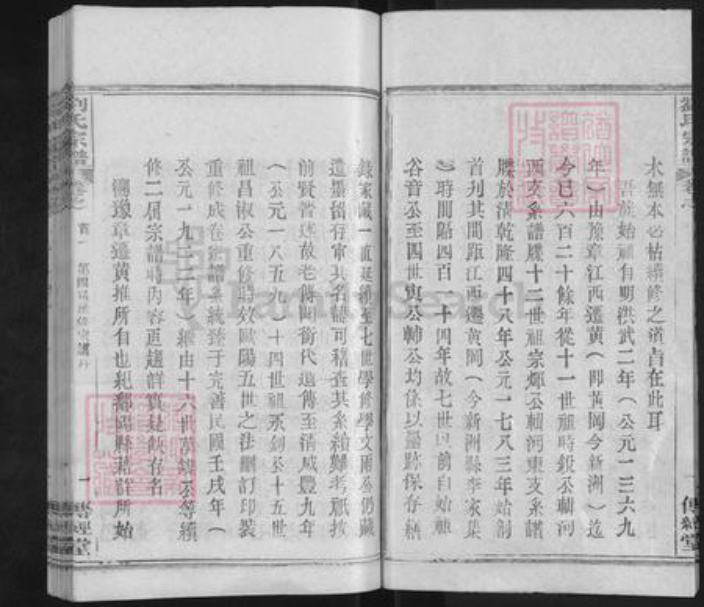 劉氏宗譜
卷之
木無本必枯續修之道貞在此耳
吾族始祖自明洪武二年（公元一三六九
年）由豫章江西遷黃（即黃岡今新洲）迄
今已六百二十餘年從十一世祖時銀公輔河
西支系譜牒十二世祖宗煇公輯河東支系譜
牒於清乾隆四十八年公元一七八三年始制
首列其間距江西遷黃岡（今新洲縣李家集
）時間隔四百一十四年故七世以前自始祖
谷音公至四世旗公輔公均係以墨跡保存繕
一
傳經堂
錄家藏一直延續至七世學修學文兩公仍藏
遺墨留存审其名諱可稽查其系續難考祇按
前賢普述故老傳聞衡代遞傳至清咸豐九年
（公元一八五九）十四世祖永釗公十五世
祖昌淑公重修時效歐陽五世之法刪訂印裝
重修成卷 譜系統臻于完善民國壬戌年（
公元一九二二年）繼由十六世萬 公等續
修二屆宗譜時內容更趨詳實是
溯豫章遷黃推所自也 縣 所始
劉氏宗譜
卷之
首
一
傳經堂
FamilySearch